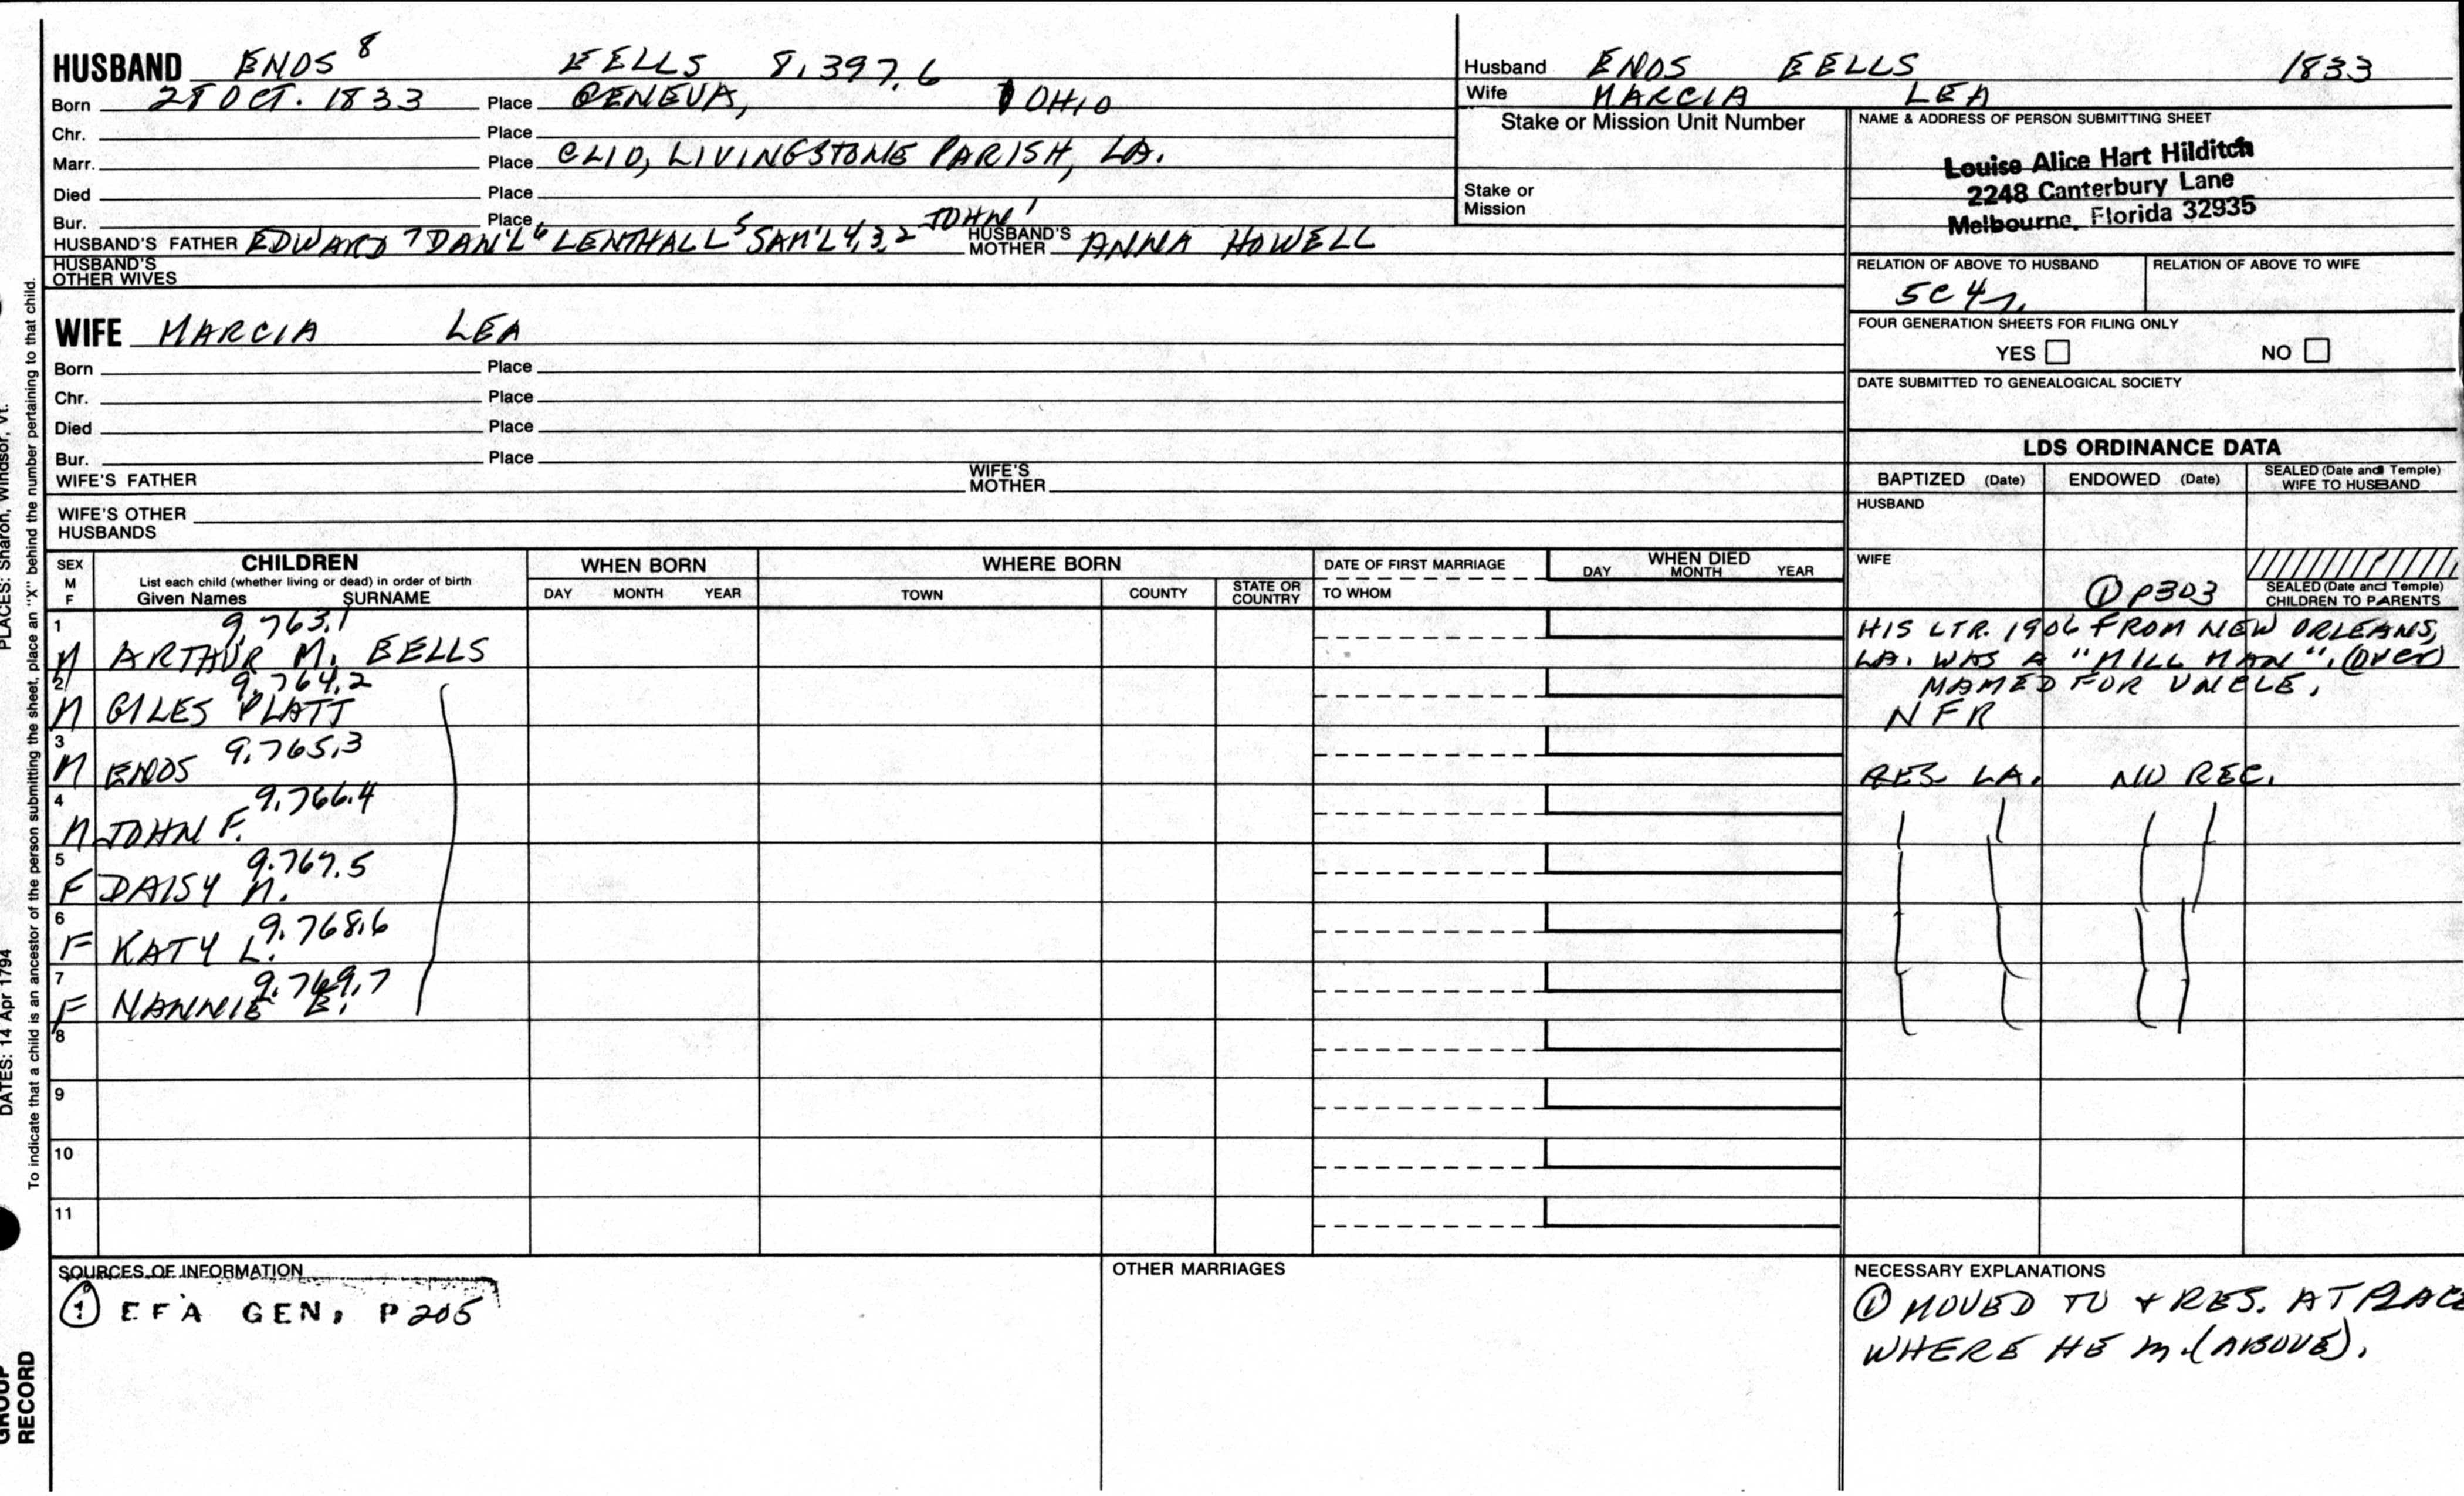 HUSBAND ENOS 8 EELLS 8.397.6
Born 28 OCT. 1833 Place GENEVA, OHIO
Chr. Place
Marr. Place CLIO, LIVINGSTONE PARISH, LA.
Died Place
Bur. Place
HUSBAND'S FATHER EDWARD 7 DAN'L 6 LENTHALL 5 SAM'L 4,3,2 JOHN 1 HUSBAND'S MOTHER ANNA HOWELL
HUSBAND'S OTHER WIVES
Husband ENOS EELLS 1833
Wife MARCIA LEA
Stake or Mission Unit Number
Stake or Mission
NAME & ADDRESS OF PERSON SUBMITTING SHEET
Louise Alice Hart Hilditch
2248 Canterbury Lane
Melbourne, Florida 32935
RELATION OF ABOVE TO HUSBAND RELATION OF ABOVE TO WIFE
5C4r.
FOUR GENERATION SHEETS FOR FILING ONLY
YES NO
DATE SUBMITTED TO GENEALOGICAL SOCIETY
WIFE MARCIA LEA
Born Place
Chr. Place
Died Place
Bur. Place
WIFE'S FATHER WIFE'S MOTHER
WIFE'S OTHER HUSBANDS
LDS ORDINANCE DATA
BAPTIZED (Date) ENDOWED (Date) SEALED (Date and Temple) WIFE TO HUSBAND
HUSBAND
WIFE
① P303
SEALED (Date and Temple) CHILDREN TO PARENTS
SEX M F
CHILDREN
List each child (whether living or dead) in order of birth
Given Names SURNAME
WHEN BORN
DAY MONTH YEAR
WHERE BORN
TOWN COUNTY STATE OR COUNTRY
DATE OF FIRST MARRIAGE
TO WHOM
WHEN DIED
DAY MONTH YEAR
1 9.763.1
M ARTHUR M. EELLS
HIS LTR. 1906 FROM NEW ORLEANS,
LA. WAS A "MILL MAN". (OVER)
2 9.764.2
M GILES PLATT
NAMED FOR UNCLE.
NFR
3 9.765.3
M ENOS
RES LA. NO REC.
4 9.766.4
M JOHN F.
5 9.767.5
F DAISY M.
6 9.768.6
F KATY L.
7 9.769.7
F NANNIE E.
8
9
10
11
SOURCES OF INFORMATION
① EFA GEN. P205
OTHER MARRIAGES
NECESSARY EXPLANATIONS
① MOVED TO + RES. AT PLACE
WHERE HE m. (ABOVE).
PLACES: Sharon, Windsor, Vt.
DATES: 14 Apr 1794
To indicate that a child is an ancestor of the person submitting the sheet, place an "X" behind the number pertaining to that child.
GROUP
RECORD